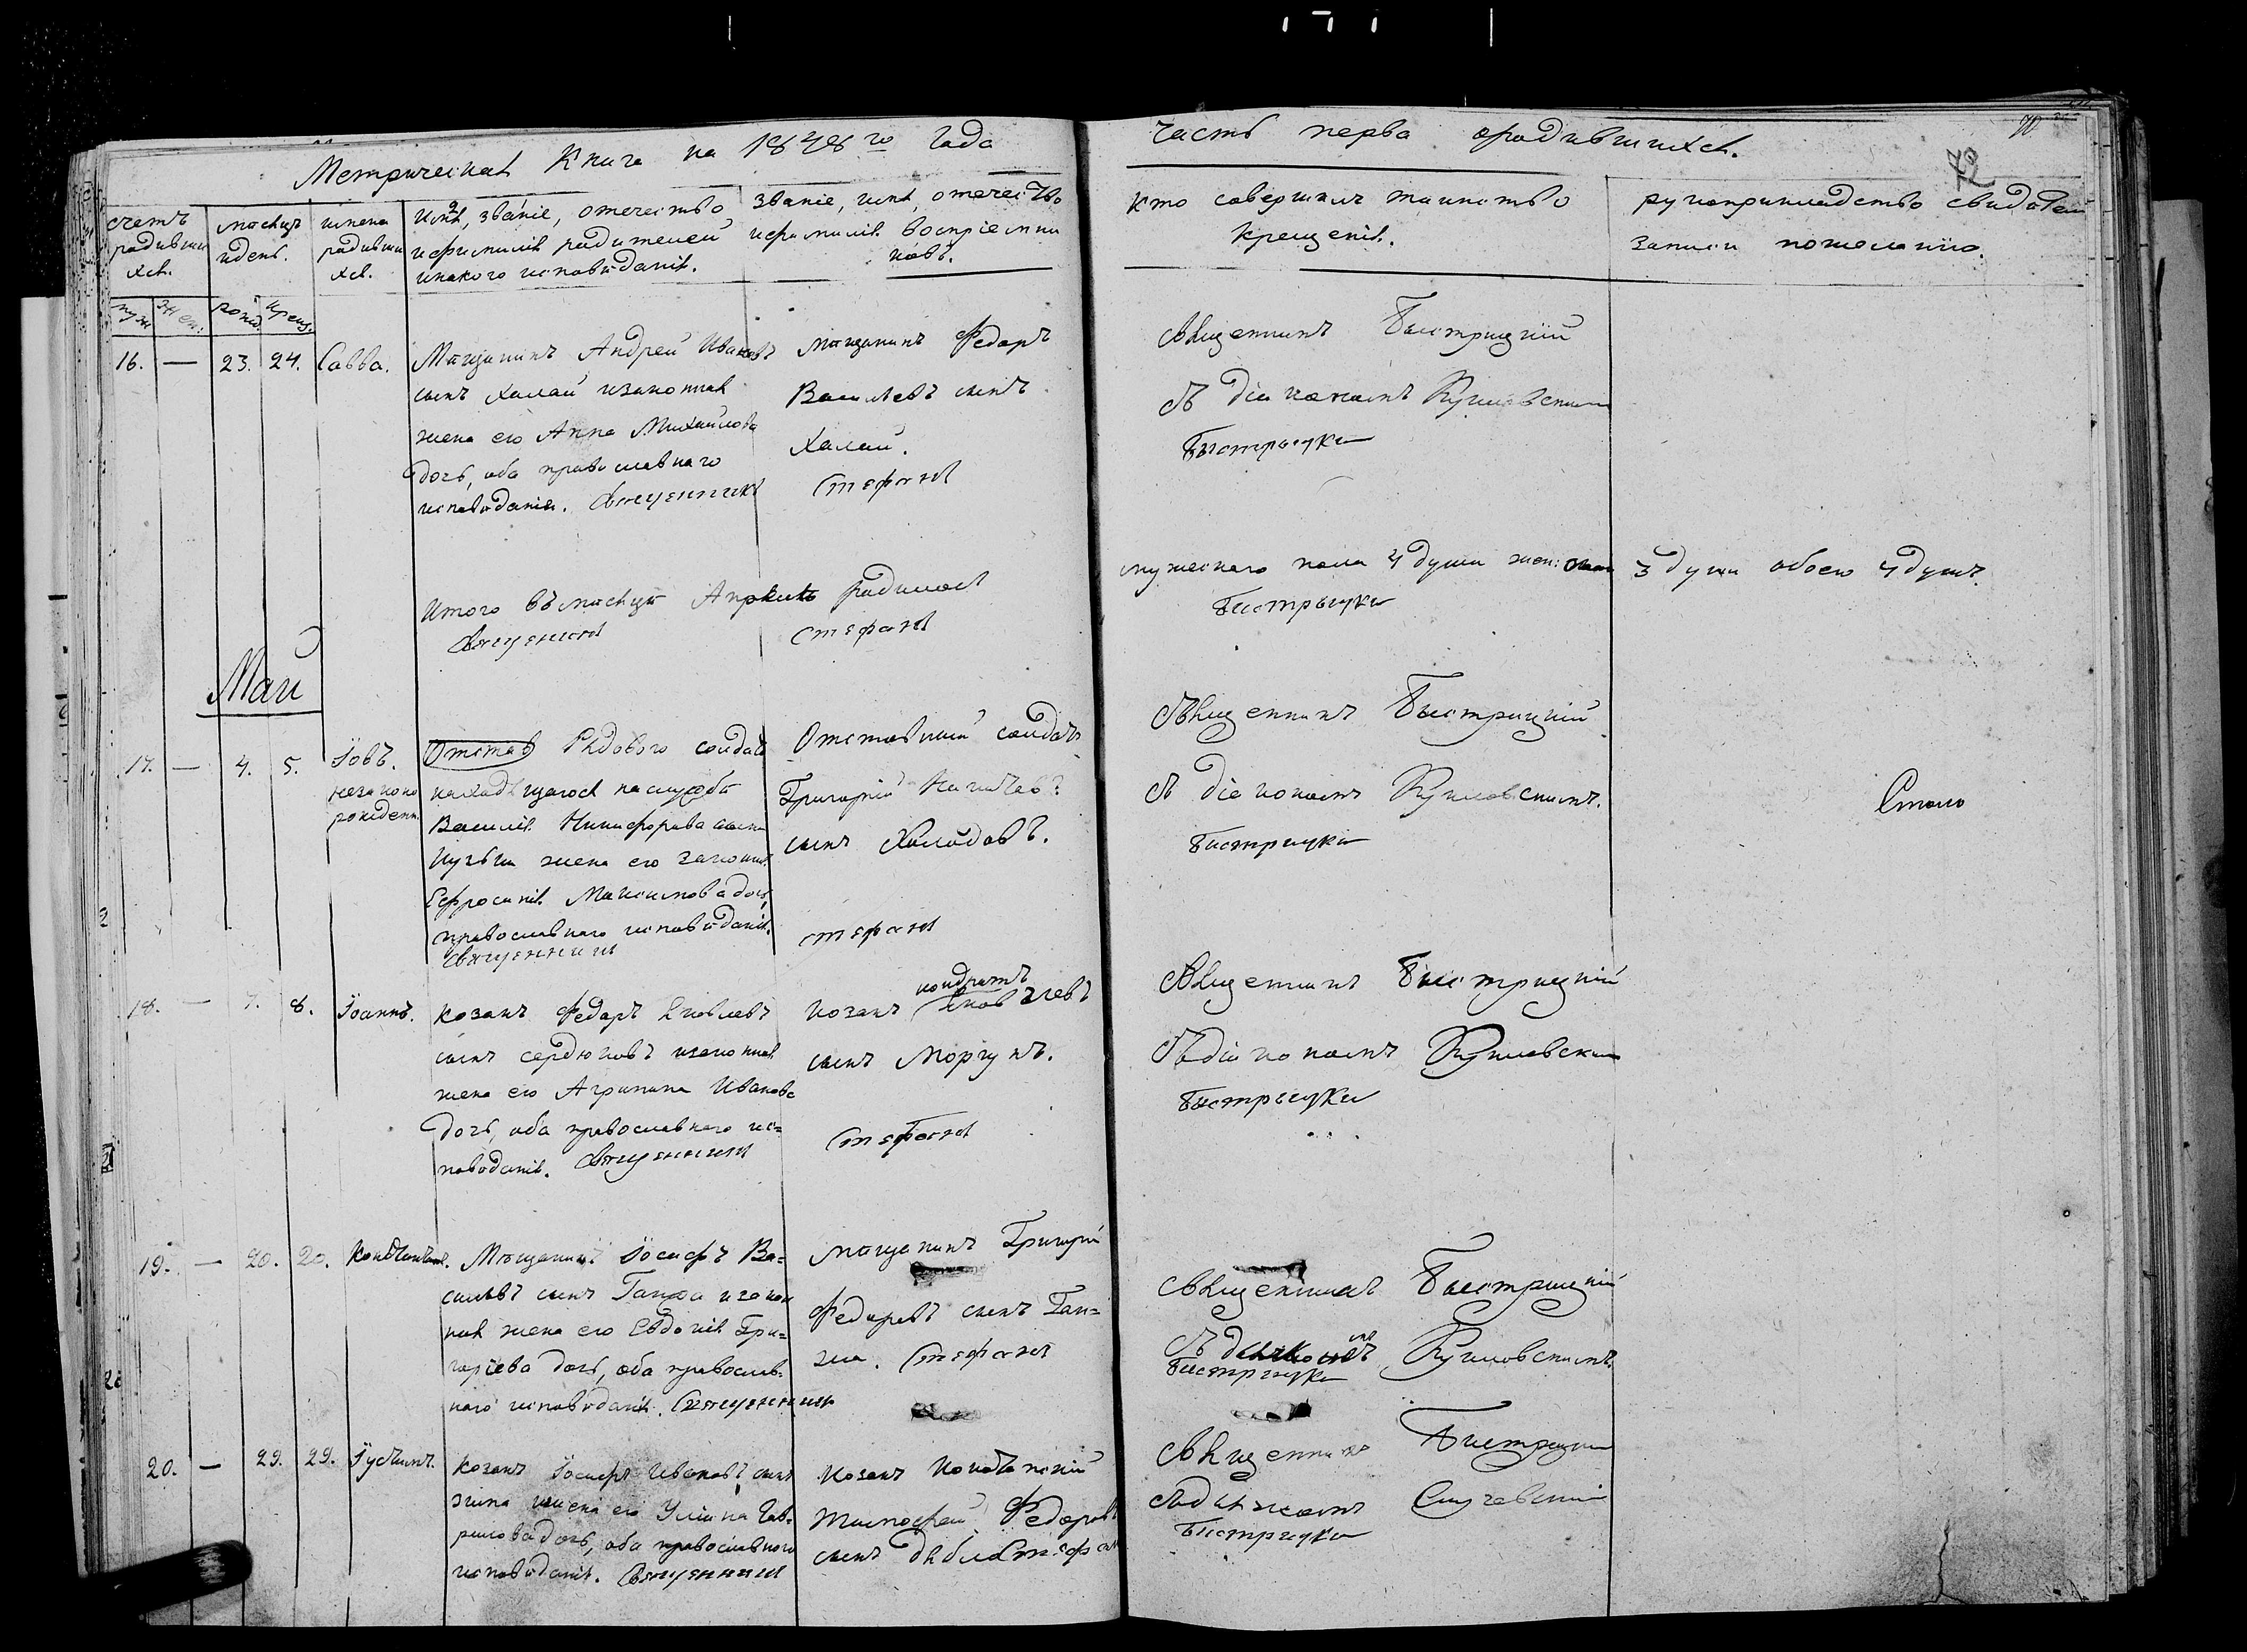 Метрическая Книга на 1848го Года
часть перва о родившихся.
72
счетъ родивши хся.
месяцъ и день.
имена родивши хся.
Имя, званіе, отечество
и фамилія родителей
и какого исповѣданія.
Званіе, имя, отечество
и фамилія воспріемни
ковъ.
Кто совершилъ таинство
Крещенія.
рукоприкладство свидѣтелей
записи по желанію.
муж. жен. рожд. крещ.
16. — 23. 24. Савва.
Мѣщанинъ Андрей Ивановъ
сынъ Халай и законная
жена его Анна Михайлова
дочь, оба православнаго
исповѣданія. Священникъ
мѣщанинъ Федоръ
Васильевъ сынъ
Халай.
Стефанъ
Священникъ Быстрицкій
съ діакономъ
Быстрицкій
Итого въ мѣсяцѣ Апрѣлѣ родилось
Священникъ Стефанъ
мужескаго пола 4 души жен: 3 души обоего 4 душъ.
Быстрицкій
Май
17. — 4. 5. Іовъ.
незаконо
рожден.
Отстав Рядового солдата
находящагося на службѣ
Василія Никифорова сына
жена его законная
Ефросинія Максимова дочь,
православнаго исповѣданія.
Священникъ
Отставный солдатъ
Григорій
сынъ Холодовъ.
Стефанъ
Священникъ Быстрицкій
съ діакономъ
Быстрицкій
18. — 7. 8. Іоаннъ.
Козакъ Федоръ Яковлевъ
сынъ Сердюковъ и законная
жена его Агрипина Иванова
дочь, оба православнаго ис=
повѣданія. Священникъ
кондратъ
Козакъ
сынъ Моргунъ.
Стефанъ
Священникъ Быстрицкій
Съ діакономъ
Быстрицкій
19. — 20. 20. Константинъ.
Мѣщанинъ Іосифъ Ва=
сильевъ сынъ Ганжа и закон
ная жена его Евдокія Гри=
горіева дочь, оба православ=
наго исповѣданія. Священникъ
мѣщанинъ Григорій
Федоровъ сынъ Ган=
жа. Стефанъ
Священникъ Быстрицкій
Съ
Быстрицкій
20. — 29. 29. Іустинъ.
Козакъ Іосифъ Ивановъ сынъ
жена его Уліана Гав=
рилова дочь, оба православного
исповѣданія. Священникъ
Козакъ
Тимофей Федоровъ
сынъ Стефанъ
Священникъ Быстрицкій
Быстрицкій